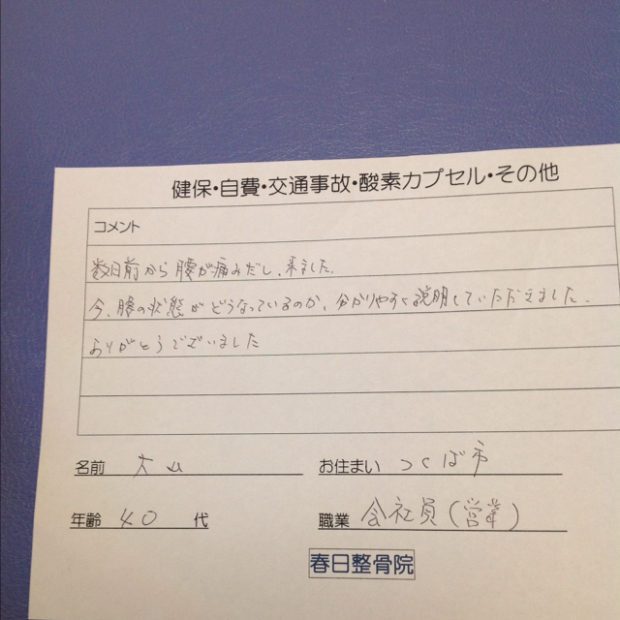 健保・自費・交通事故・酸素カプセル・その他
コメント
数日前から腰が痛みだし、来ました。
今、腰の状態がどうなっているのか、分かりやすく説明していただきました。
ありがとうございました
名前 大山 お住まい つくば市
年齢 40 代 職業 会社員(営業)
春日整骨院